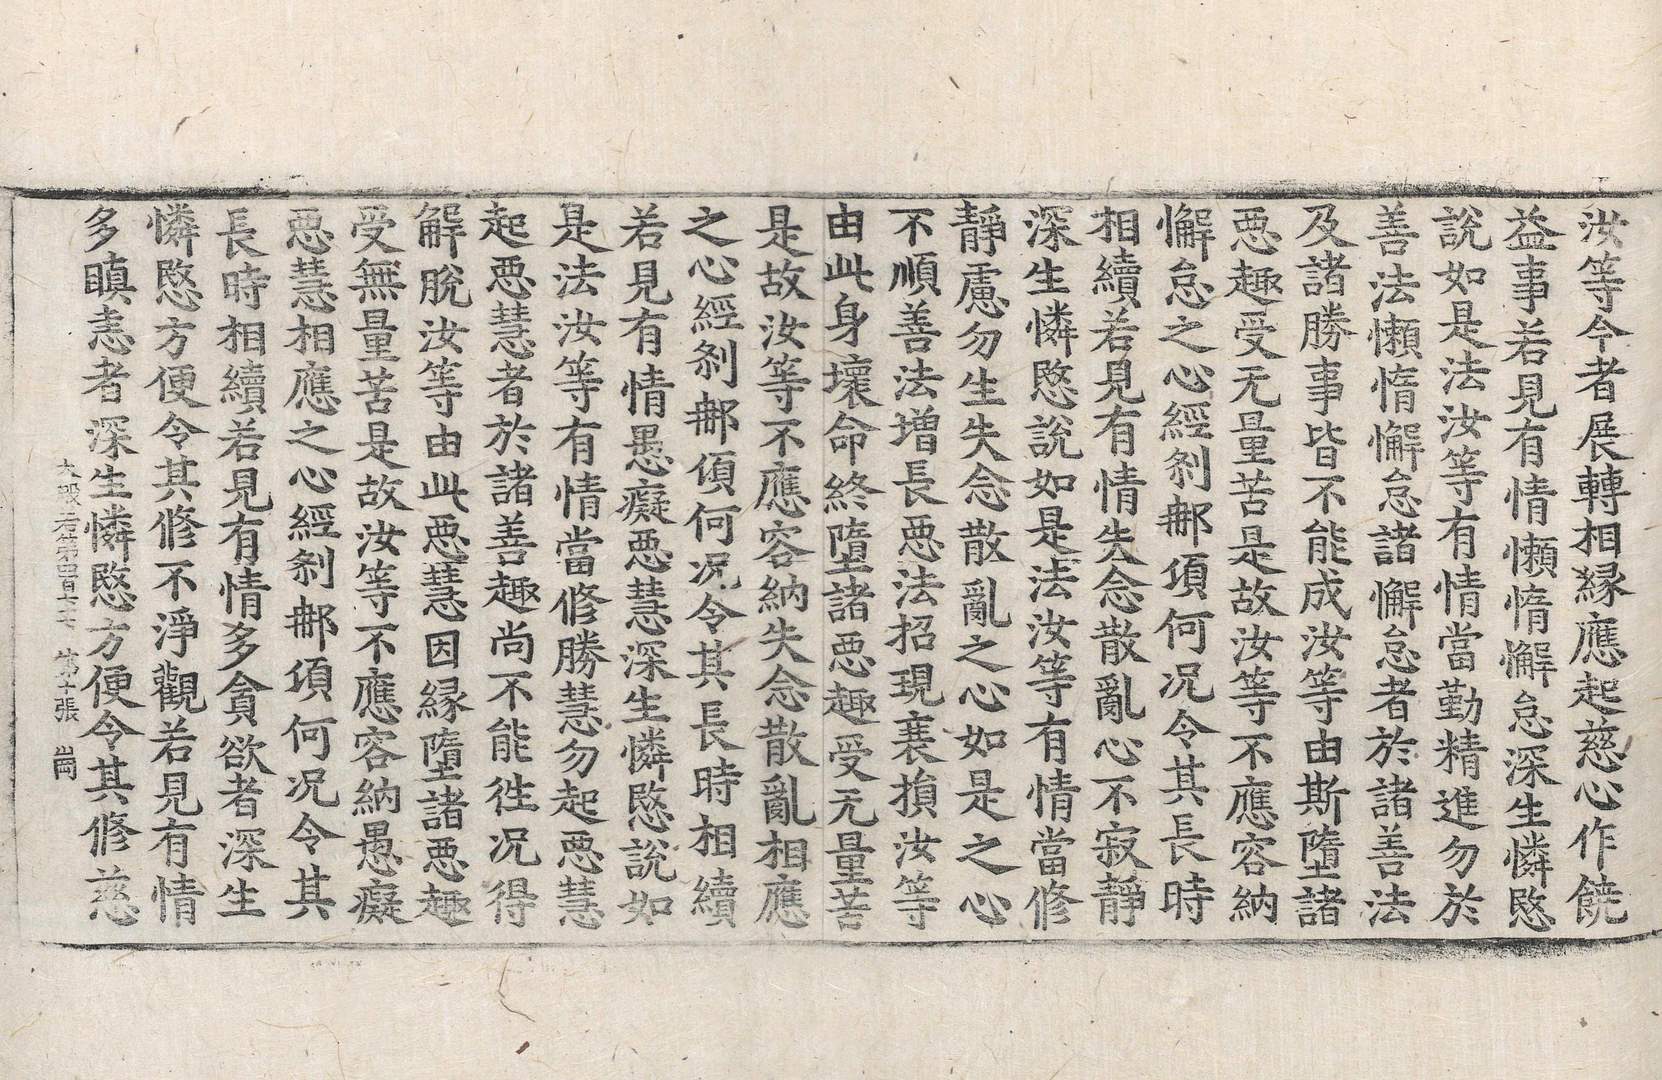 汝等今者展轉相縁應起慈心作饒
益事若見有情懶惰懈怠深生憐愍
說如是法汝等有情當勤精進勿於
善法懶惰懈怠諸懈怠者於諸善法
及諸勝事皆不能成汝等由斯墮諸
惡趣受无量苦是故汝等不應容納
懈怠之心經刹那頃何況令其長時
相續若見有情失念散亂心不寂靜
深生憐愍說如是法汝等有情當修
靜慮勿生失念散亂之心如是之心
不順善法增長惡法招現衰損汝等
由此身壞命終墮諸惡趣受无量苦
是故汝等不應容納失念散亂相應
之心經刹那頃何況令其長時相續
若見有情愚癡惡慧深生憐愍說如
是法汝等有情當修勝慧勿起惡慧
起惡慧者於諸善趣尚不能往況得
解脫汝等由此惡慧因縁墮諸惡趣
受無量苦是故汝等不應容納愚癡
惡慧相應之心經刹那頃何況令其
長時相續若見有情多貪欲者深生
憐愍方便令其修不淨觀若見有情
多瞋恚者深生憐愍方便令其修慈
大般若第四百六十六 第十張 崗